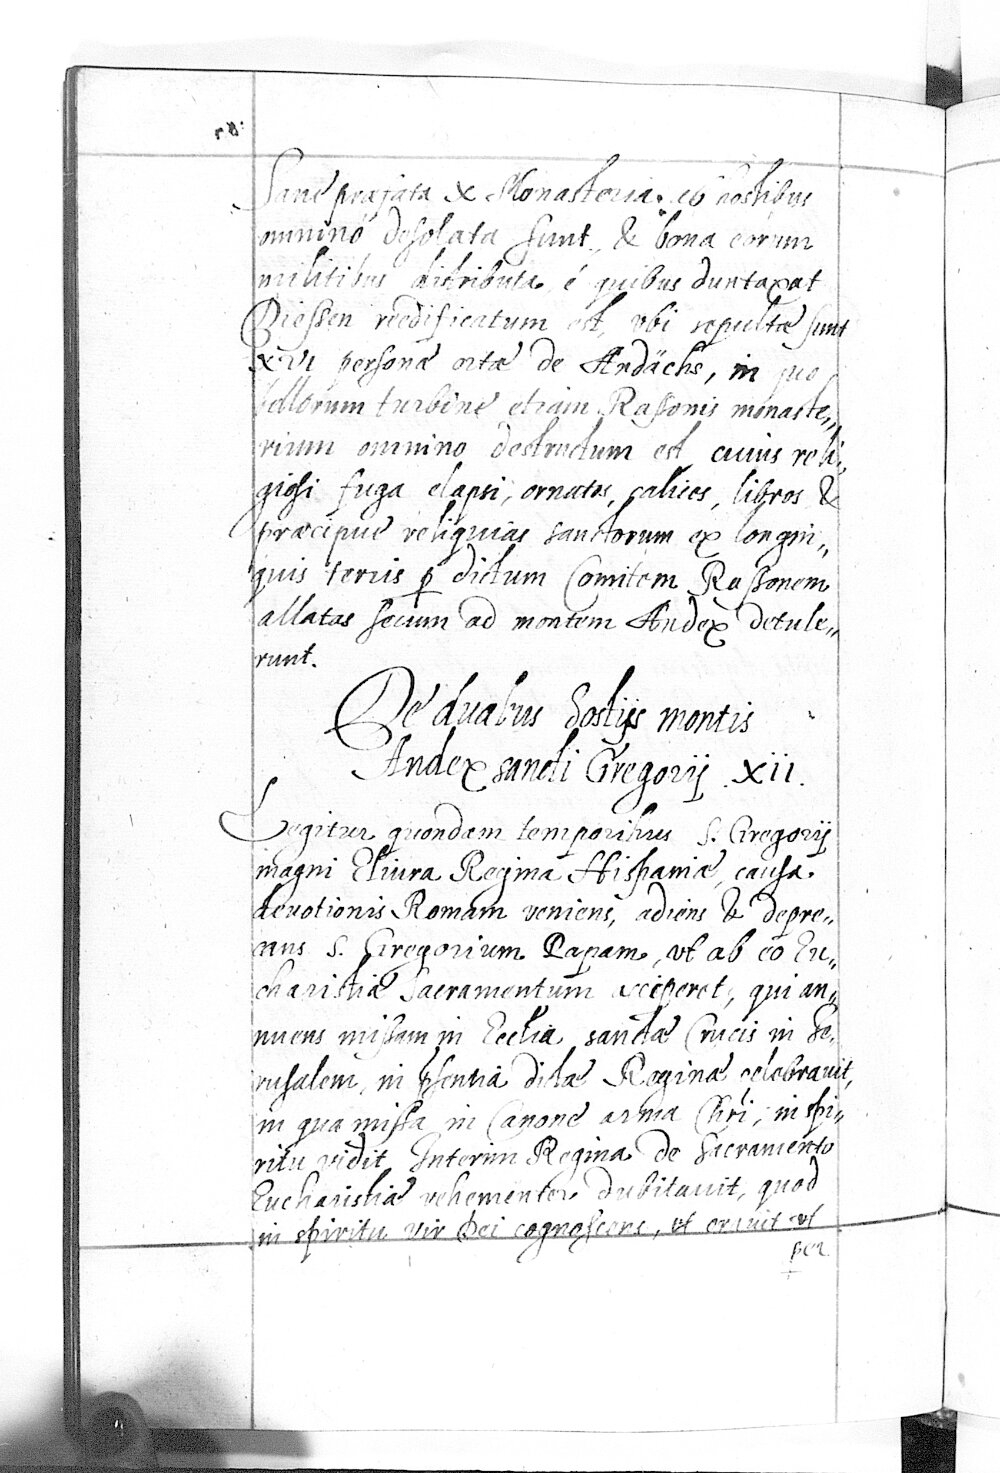 Sane præfata X Monasteria ab hostibus
omnino desolata sunt, & bona eorum
militibus distributa, é quibus duntaxat
Diessen reedificatum est, vbi sepultæ sunt
XVI personæ ortæ de Andächs, in quo
bellorum turbine etiam Rassonis monaste„
rium omnino destructum est cuius reli„
giosi fuga elapsi, ornatus, calices, libros &
præcipue reliquias sanctorum ex longin„
quis terris p dictum Comitem Rassonem
allatas secum ad montem Andex detule„
runt.
De duabus hostijs montis
Andex sancti Gregorij XII.
Legitur quondam temporibus S. Gregorij
magni Eluira Regina Hispaniæ, causa
deuotionis Romam veniens, adiens & depre„
cans S. Gregorium Papam, vt ab eo Eu„
charistiæ Sacramentum acciperet, qui an„
nuens missam in Ecclia sanctæ Crucis in Je„
rusalem, in psentia dictæ Reginæ celebrauit,
in qua missa in Canone arma Chri, in spi„
ritu vidit Interim Regina de Sacramento
Eucharistiæ vehementer dubitauit, quod
in spiritu vir Dei cognoscens, vt orauit vt
per